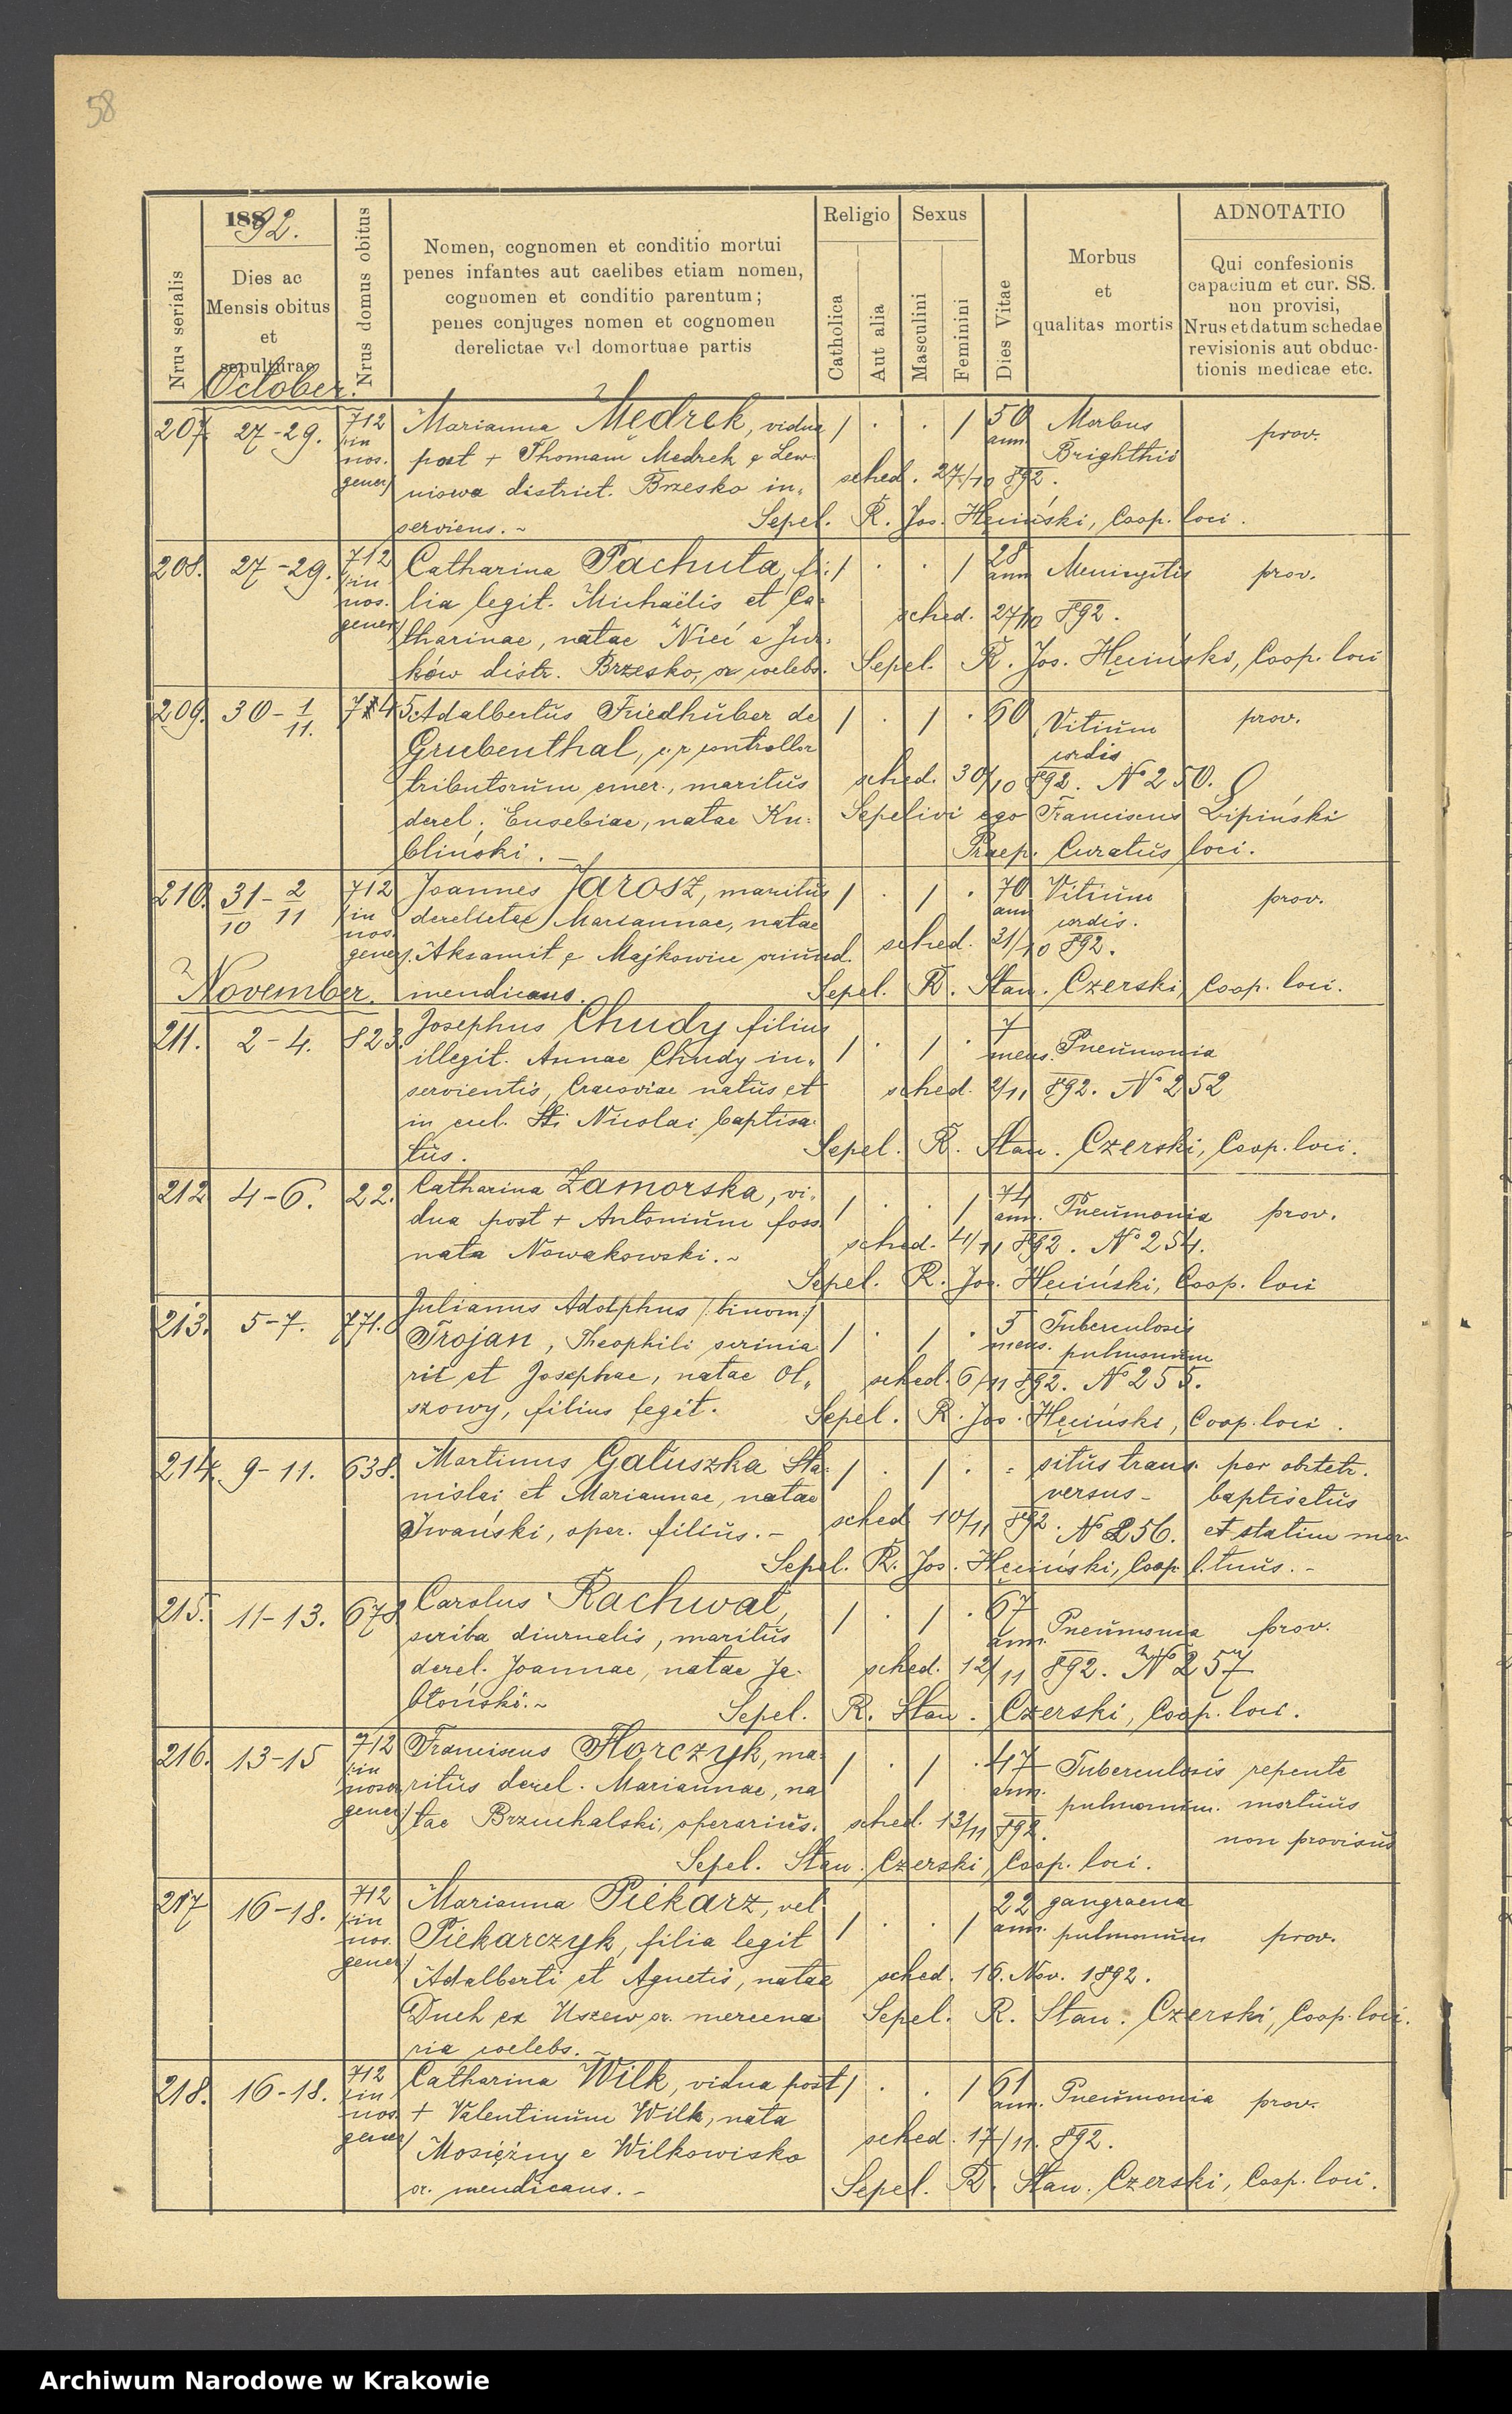 58
Nrus serialis
188
92.
Dies ac
Mensis obitus
et
sepulturae
Nrus domus obitus
Nomen, cognomen et conditio mortui
penes infantes aut caelibes etiam nomen,
cognomen et conditio parentum;
penes conjuges nomen et cognomen
derelictae vel domortuae partis
Religio
Catholica
Aut alia
Sexus
Masculini
Feminini
Dies Vitae
Morbus
et
qualitas mortis
ADNOTATIO
Qui confesionis
capacium et cur. SS.
non provisi,
Nrus et datum schedae
revisionis aut obduc-
tionis medicae etc.
October.
207. 27-29. 712 Marianna Mędrek, vidua / . . / 50 Morbus prov.
/:in nos. post + Thomam Mędrek e Lew- ann Brighthii
gener/ niowa district. Brzesko in„ sched. 27/10 892.
serviens. ~ Sepel. R. Jos. Hęciński, Coop. loci.
208. 27-29. 712 Catharina Pachuta, fi: / . . / 28 Meningitis prov.
/:in nos. lia legit. Michaëlis et Ca= ann
gener/ tharinae, natae Nieć e Jur: sched. 27/10 892.
ków distr. Brzesko, or. coelebs. Sepel. R. Jos. Hęciński, Coop. loci
209. 30-1/11. Adalbertus Friedhuber de / . / . 60 Vitium prov.
Grubenthal, controllor cordis
tributorum emer., maritus sched. 30/10 892. No 250.
derel. Eusebiae, natae Ku: Sepelivi ego Franciscus Lipiński
bliński. — Praep. Curatus loci.
210. 31/10-2/11 712 Joannes Jarosz, maritus / . / . 70 Vitium prov.
/:in nos. derelictae Mariannae, natae ann cordis.
gener/. Aksamit e Majkowice oriund. sched. 31/10 892.
November. mendicans. Sepel. R. Stan. Czerski, Coop. loci.
211. 2-4. 823. Josephus Chudy filius / . / . 7 Pneumonia
illegit. Annae Chudy in„ mens.
servientis, Cracoviae natus et sched. 2/11 892. No 252
in eccl. Sti Nicolai baptisa-
tus. Sepel. R. Stan. Czerski, Coop. loci.
212 4-6. 22. Catharina Zamorska, vi„ / . . / 74 Pneumonia prov.
dua post + Antonium foss. ann.
nata Nowakowski. ~ sched. 4/11 892. No 254.
Sepel. R. Jos. Hęciński, Coop. loci
213. 5-7. 771. Julianus Adolphus /:binom:/
Trojan, Theophili scrinia- / . / . 5 Tuberculosis
rii et Josephae, natae Ol„ mens. pulmonum
szowy, filius legit. sched. 6/11 892. No 255.
Sepel. R. Jos. Hęciński, Coop. loci.
214. 9-11. 638. Martinus Gałuszka Sta- / . / . = situs trans- per obstetr.
nislai et Mariannae, natae versus - baptisatus
Iwański, oper. filius. - sched 10/11 892. No 256. et statim mor
Sepel. R. Jos. Hęciński, Coop. l. tuus. -
215. 11-13. 678 Carolus Rachwał, / . / . 67 Pneumonia prov.
scriba diurnalis, maritus ann.
derel. Joannae, natae Ja- sched. 12/11 892. No 257
błoński. ~ Sepel. R. Stan. Czerski, Coop. loci.
216. 13-15 712 Franciscus Florczyk, ma- / . / . 47 Tuberculosis repente
/:in nosoc ritus derel. Mariannae, na ann. pulmonum. mortuus
gener:/ tae Brzuchalski, operarius. sched. 13/11 892. non provisus
Sepel. Stan. Czerski, Coop. loci.
217 16-18. 712 Marianna Piekarz, vel / . . / 22 gangraena
/:in nos. Piekarczyk, filia legit ann. pulmonum prov.
gener/ Adalberti et Agnetis, natae sched. 16. Nov. 1892.
Duch ex Uszew or. mercena Sepel. R. Stan. Czerski, Coop. loci.
ria coelebs. ~
218. 16-18. 712 Catharina Wilk, vidua post / . . / 61 Pneumonia prov.
/:in nos. + Valentinum Wilk, nata ann.
gener/ Mosiężny e Wilkowisko sched. 17/11. 892.
or. mendicans. - Sepel. R. Stan. Czerski, Coop. loci.
Archiwum Narodowe w Krakowie